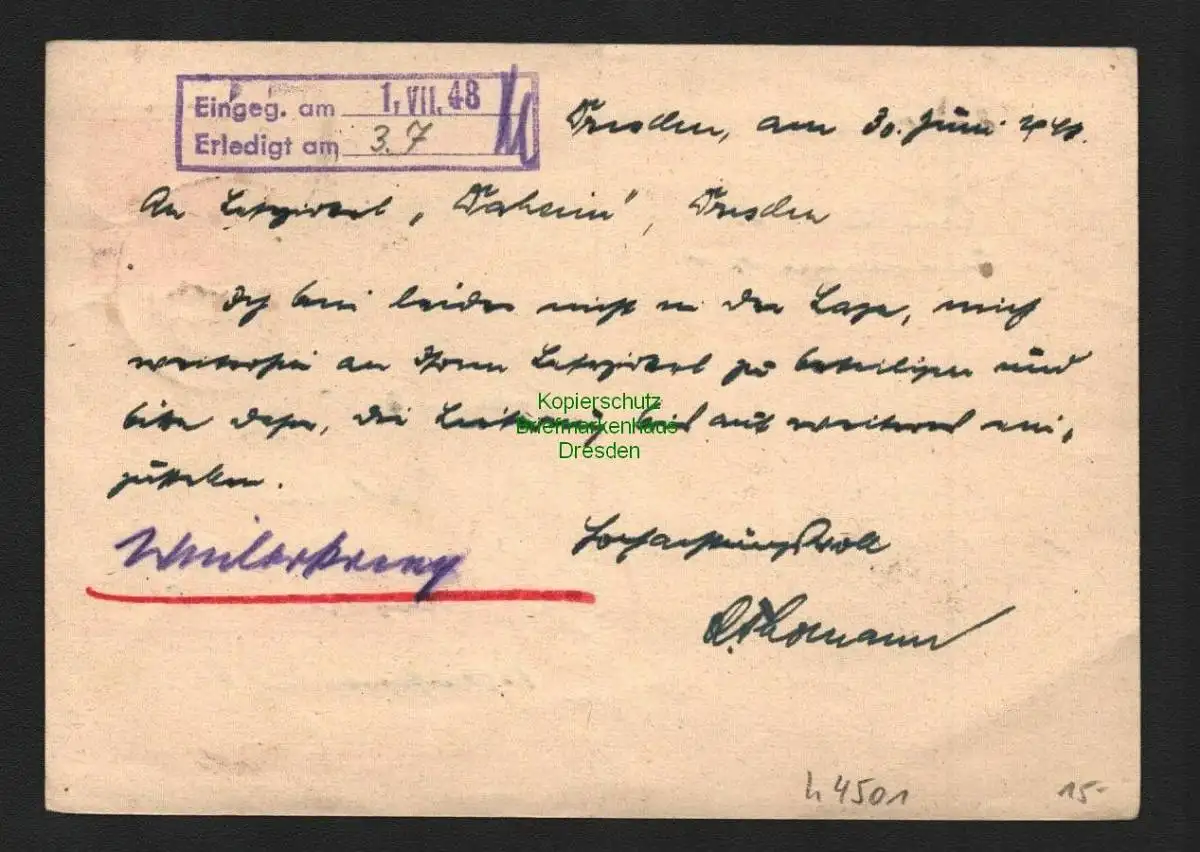 Eingeg. am 1. VII. 48
Erledigt am 3.7
Dresden, am 30. Juni 1948.
An Lesezirkel „Daheim", Dresden
Ich bin leider nicht in der Lage, mich
weiterhin an Ihrem Lesezirkel zu beteiligen und
bitte daher, die Lieferung bis auf weiteres ein-
zustellen.
Kopierschutz
Briefmarkenhaus
Dresden
Hochachtungsvoll
Thomann
h 4501
15-